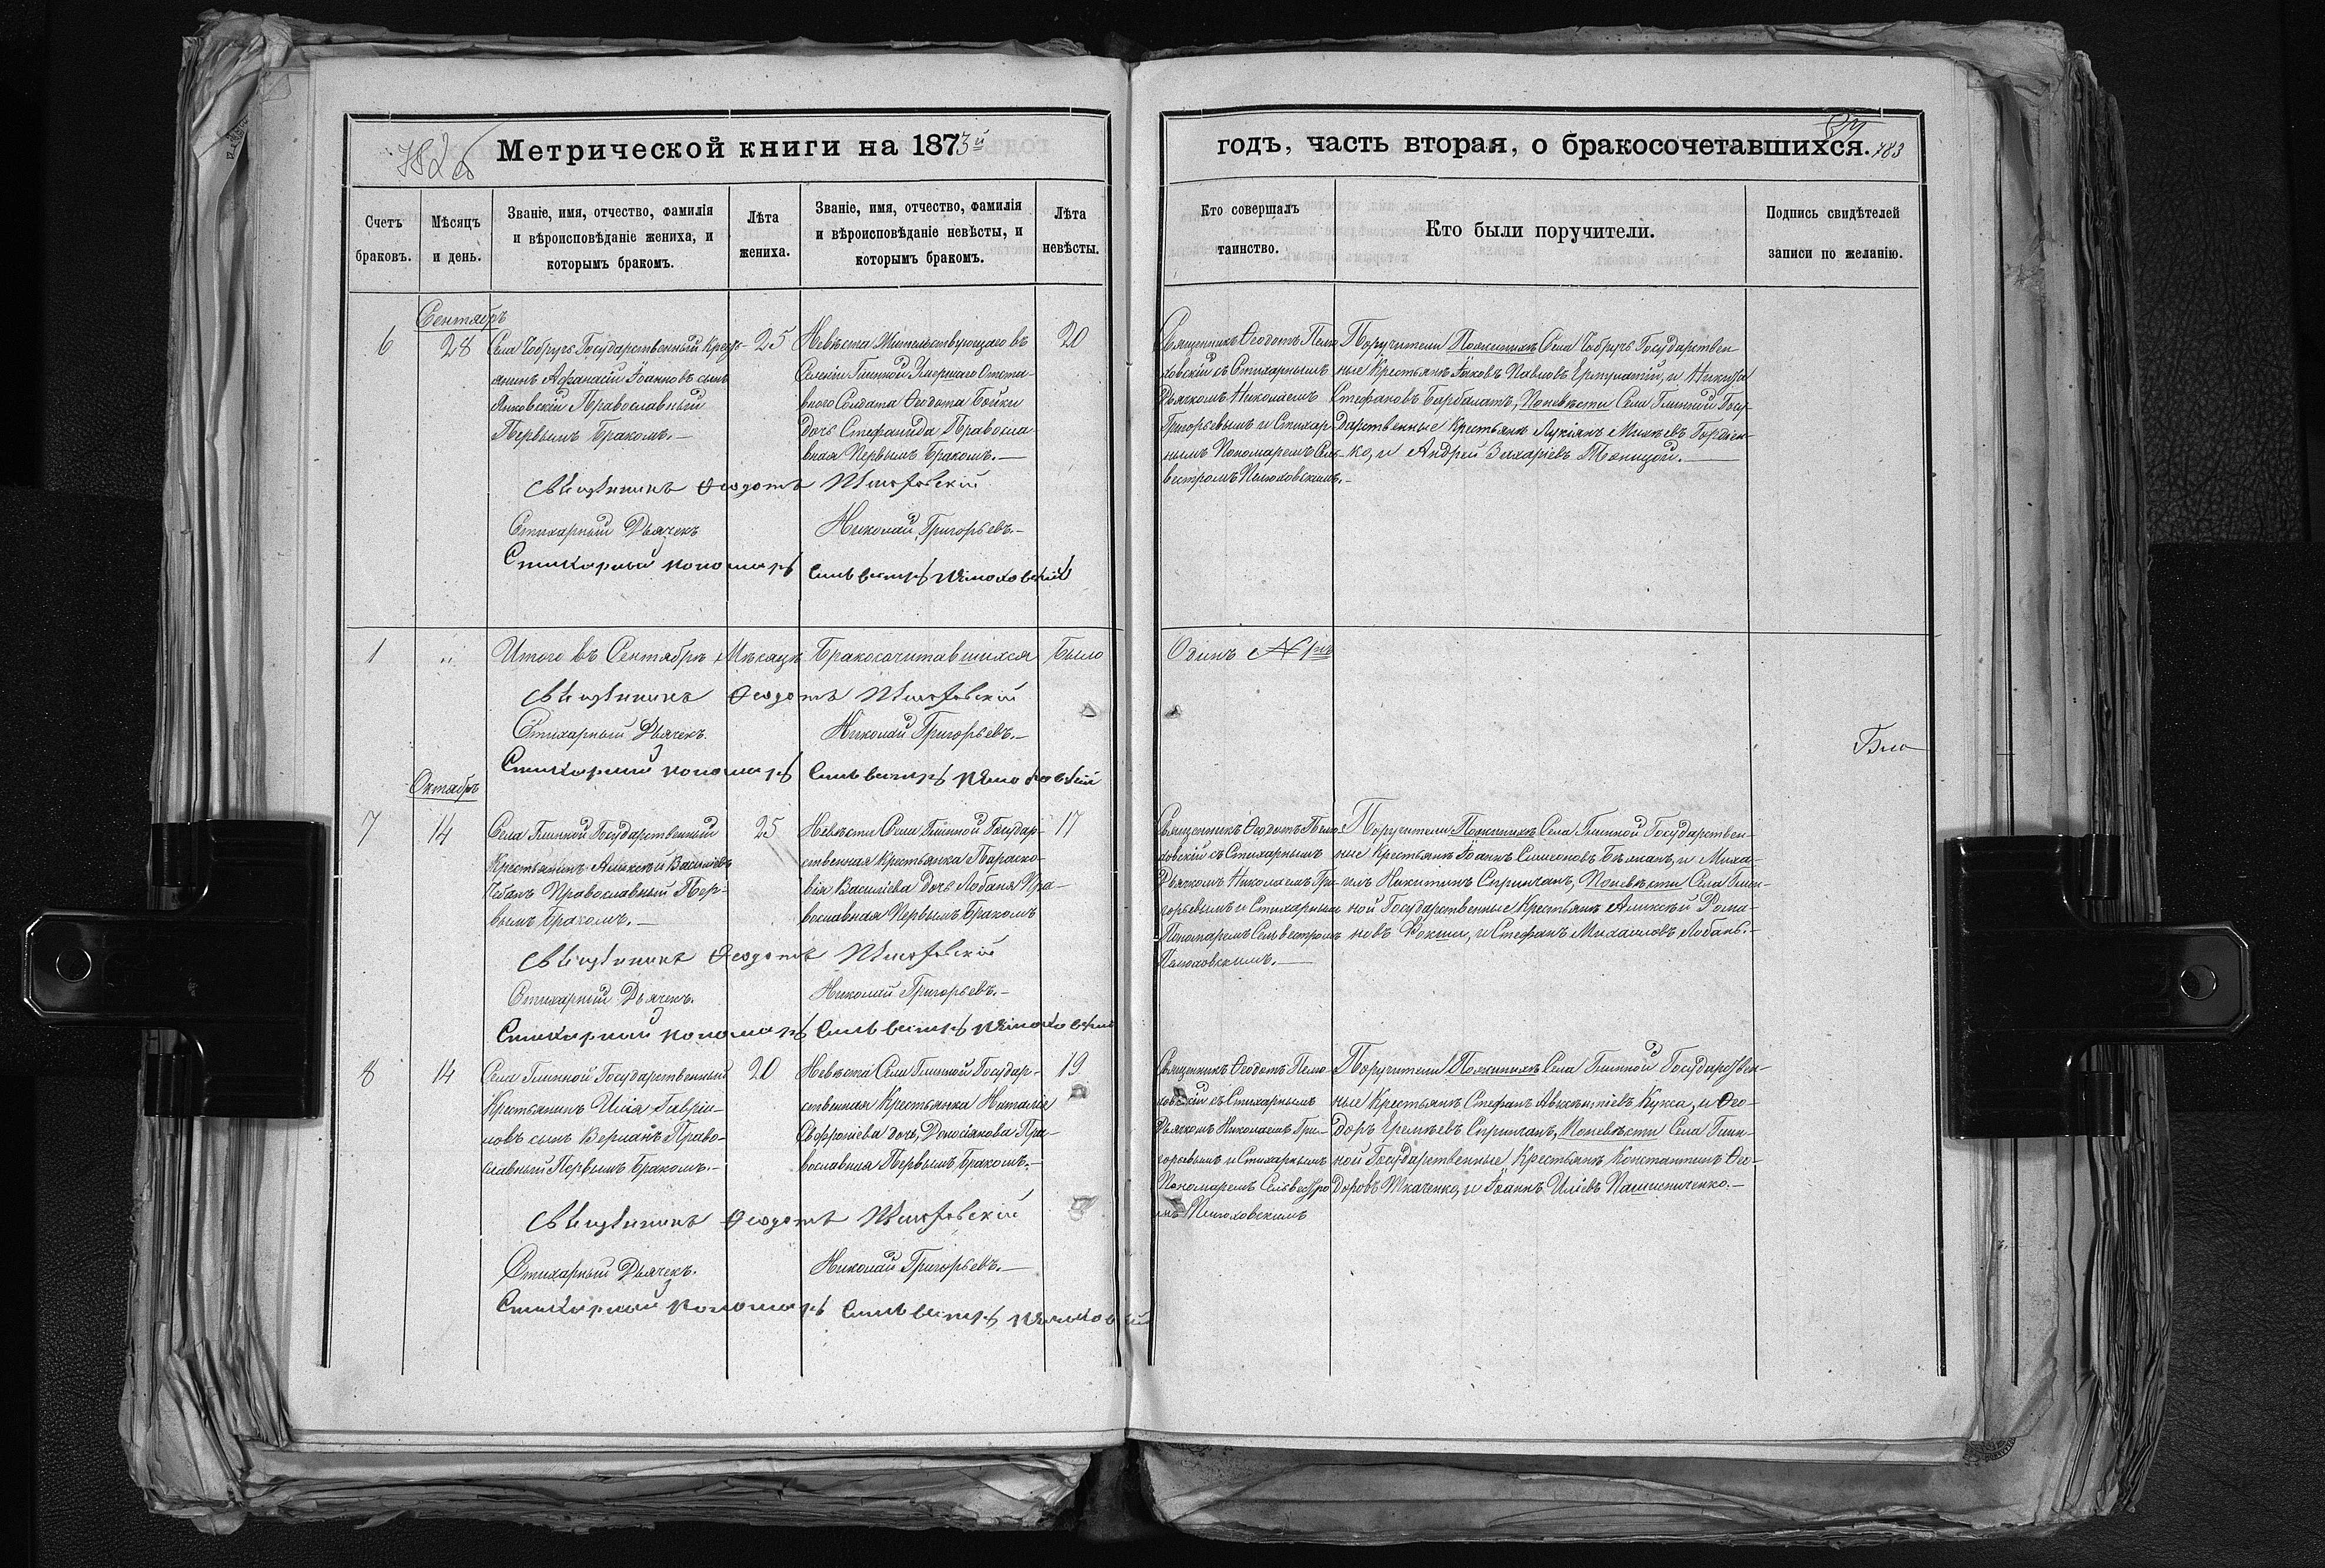 782 об
Метрической книги на 1873й
Счетъ браковъ.
Мѣсяцъ и день.
Званіе, имя, отчество, фамилія и вѣроисповѣданіе жениха, и которымъ бракомъ.
Лѣта жениха.
Званіе, имя, отчество, фамилія и вѣроисповѣданіе невѣсты, и которымъ бракомъ.
Лѣта невѣсты.
Сентябръ
6
28
Села Чобручъ Государственный Кресть-
янинъ Афанасій Іоанновъ сынъ
Янковскій Православный
Первымъ бракомъ.—
25
Невѣста Жительствующаго въ
Селеніи Глинной Умершаго Отста-
внаго Солдата Ѳеодота Бойки
дочь Стефанида Правосла-
вная Первымъ бракомъ.—
20
Священникъ Ѳеодотъ Пелюховскій
Стихарный Дьячекъ Николай Григорьевъ.—
Стихарный пономаръ Сильвестръ Пелюховскій
1 " Итого въ Сентябрѣ Мѣсяцѣ Бракосочитавшихся Было
Священникъ Ѳеодотъ Пелюховскій
Стихарный Дьячекъ. Николай Григорьевъ.—
Стихарный пономаръ Сильвестръ Пелюховскій
Октябръ
7
14
Села Глинной Государственный
Крестьянинъ Алексѣй Василіевъ
Чебанъ Православный Пер-
вымъ Бракомъ.—
25
Невѣста Села Глинной Государ-
ственная Крестьянка Параске-
вія Василіева дочь Лобаня Пра-
вославная Первымъ Бракомъ
17
Священникъ Ѳеодотъ Пелюховскій
Стихарный Дьячекъ. Николай Григорьевъ.—
Стихарный пономаръ Сильвестръ Пелюховскій
8
14
Села Глинной Государственный
Крестьянинъ Илія Гаврии-
ловъ сынъ Верланъ Право-
славный Первымъ Бракомъ.—
20
Невѣста Села Глинной Государ-
ственная Крестьянка Наталія
Софроніева дочь, Пра-
вославная Первымъ Бракомъ.—
19
Священникъ Ѳеодотъ Пелюховскій
Стихарный Дьячекъ. Николай Григорьевъ.—
Стихарный пономаръ Сильвестръ Пелюховскій
годъ, часть вторая, о бракосочетавшихся.
783
Кто совершалъ таинство.
Кто были поручители.
Подпись свидѣтелей записи по желанію.
Священникъ Ѳеодотъ Пелю-
ховскій съ Стихарнымъ
Дьячкомъ Николаемъ
Григорьевымъ и Стихар-
нымъ Пономаремъ Сель-
вестромъ Пелюховскимъ.—
Поручители По женихѣ Села Чобручъ Государствен-
ные Крестьяне Іаковъ Павловъ и Никифа
Стефановъ Барбалатъ, По невѣсти Села Глинной Госу-
дарственные Крестьяне Лукіянъ Михѣевъ Гордіен-
ко, и Андрей Захаріевъ
Одинъ № 1й
Священникъ Ѳеодотъ Пелю-
ховскій съ Стихарнымъ
Дьячкомъ Николаемъ Гри-
горьевымъ и Стихарным
Пономаремъ Сельвестромъ
Пелюховскимъ.—
Поручители По женихѣ Села Глинной Государствен-
ные Крестьяне Іоаннъ Симеоновъ и Миха-
илъ Никитинъ Спринчанъ, По невѣсти Села Глин-
ной Государственные Крестьяне Алексѣй Рома-
новъ и Стефанъ Михаиловъ Лобань.—
Священникъ Ѳеодотъ Пелю-
ховскій съ Стихарнымъ
Дьячкомъ Николаемъ Гри-
горьевымъ и Стихарнымъ
Пономаремъ Сельвестро
мъ Пелюховскимъ
Поручители По женихѣ Села Глинной Государствен-
ные Крестьяне Стефанъ Авксентіевъ Кукса, и Ѳео-
доръ Еремѣевъ Спринчанъ, По невѣсти Села Глин-
ной Государственные Крестьяне Константинъ Ѳео-
доровъ Ткаченко, и Іоаннъ Иліевъ